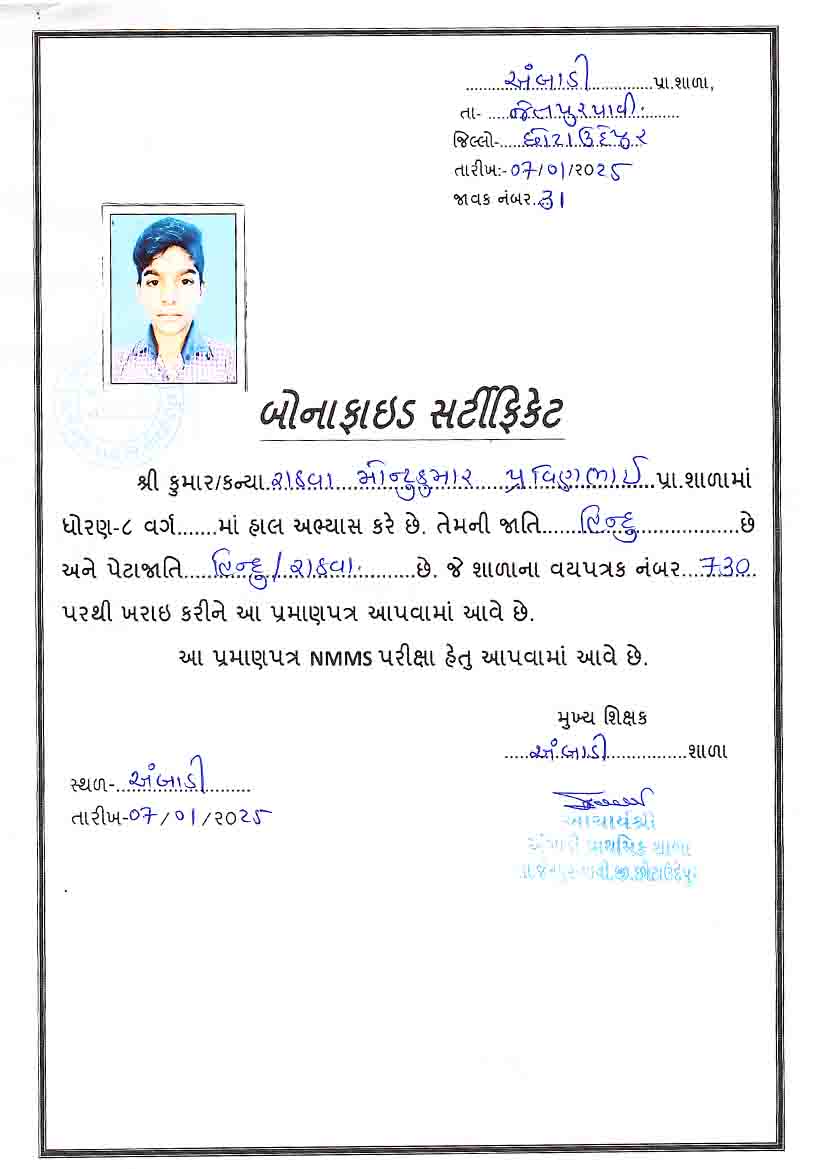 અંબાડી પ્રા.શાળા,
તા- જેતપુરપાવી.
જિલ્લો- છોટાઉદેપુર
તારીખ:- 07/01/૨૦25
જાવક નંબર..31
બોનાફાઇડ સર્ટીફિકેટ
શ્રી કુમાર/કન્યા.રાઠવા મીન્ટુકુમાર પ્રવિણભાઈ પ્રા.શાળામાં
ધોરણ-૮ વર્ગ.......માં હાલ અભ્યાસ કરે છે. તેમની જાતિ.....હિન્દુ.....છે
અને પેટાજાતિ.....હિન્દુ/રાઠવા.....છે. જે શાળાના વયપત્રક નંબર...730
પરથી ખરાઇ કરીને આ પ્રમાણપત્ર આપવામાં આવે છે.
આ પ્રમાણપત્ર NMMS પરીક્ષા હેતુ આપવામાં આવે છે.
મુખ્ય શિક્ષક
અંબાડી શાળા
સ્થળ-અંબાડી
તારીખ-07/01/૨૦25
આચાર્યશ્રી
અંબાડી પ્રાથમિક શાળા
તા.જેતપુરપાવી.જી.છોટાઉદેપુર